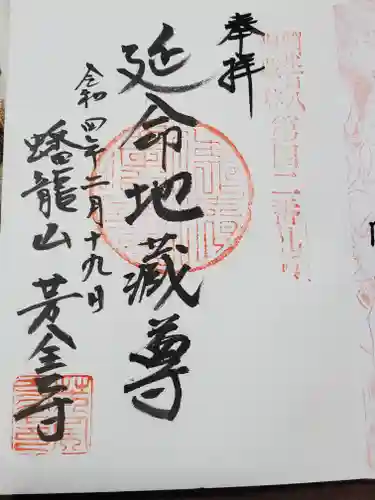 奉拝
延命地蔵尊
令和四年二月十九日
蟠龍山 芳全寺